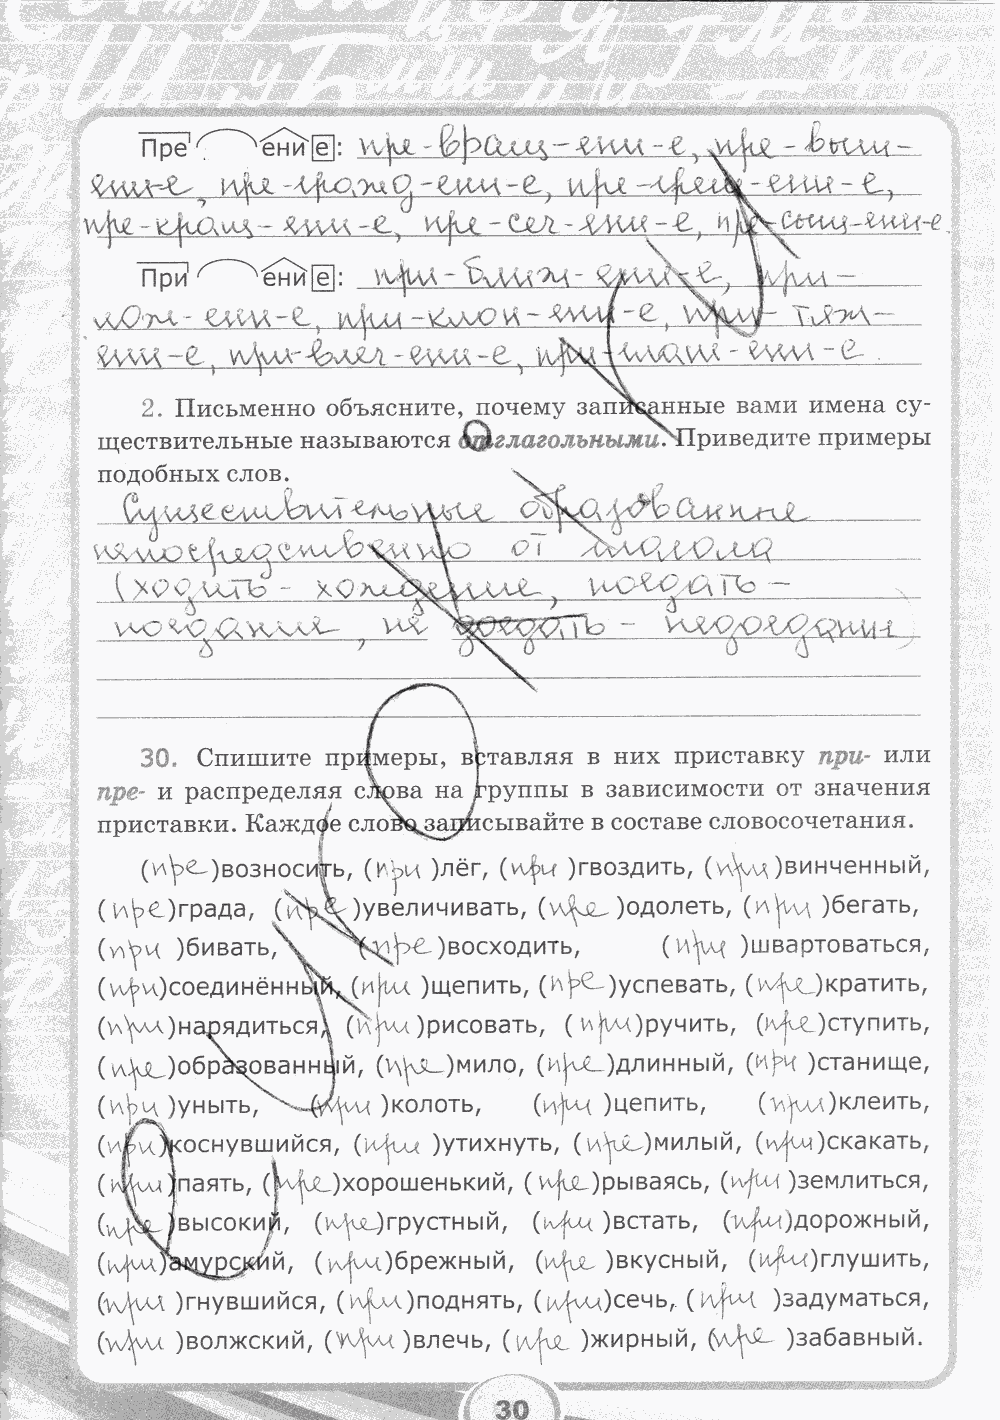 Пре ени е : пре-вращ-ени-е, пре-выш-
ени-е, пре-гражд-ени-е, пре-греш-ени-е,
пре-кращ-ени-е, пре-сеч-ени-е, пре-сыщ-ени-е.
При ени е : при-ближ-ени-е, при-
лож-ени-е, при-клон-ени-е, при-тяж-
ени-е, при-влеч-ени-е, при-глаш-ени-е.
2. Письменно объясните, почему записанные вами имена су-
ществительные называются отглагольными. Приведите примеры
подобных слов.
Существительные образованные
непосредственно от глагола
(ходить - хождение, поедать -
поедание, не доедать - недоедание)
30. Спишите примеры, вставляя в них приставку при- или
пре- и распределяя слова на группы в зависимости от значения
приставки. Каждое слово записывайте в составе словосочетания.
(пре)возносить, (при)лёг, (при)гвоздить, (при)винченный,
(пре)града, (пре)увеличивать, (пре)одолеть, (при)бегать,
(при)бивать, (пре)восходить, (при)швартоваться,
(при)соединённый, (при)щепить, (пре)успевать, (пре)кратить,
(при)нарядиться, (при)рисовать, (при)ручить, (пре)ступить,
(пре)образованный, (пре)мило, (пре)длинный, (при)станище,
(при)уныть, (при)колоть, (при)цепить, (при)клеить,
(при)коснувшийся, (при)утихнуть, (пре)милый, (при)скакать,
(при)паять, (пре)хорошенький, (пре)рываясь, (при)землиться,
(пре)высокий, (пре)грустный, (при)встать, (при)дорожный,
(при)амурский, (при)брежный, (пре)вкусный, (при)глушить,
(при)гнувшийся, (при)поднять, (при)сечь, (при)задуматься,
(при)волжский, (при)влечь, (пре)жирный, (пре)забавный.
30